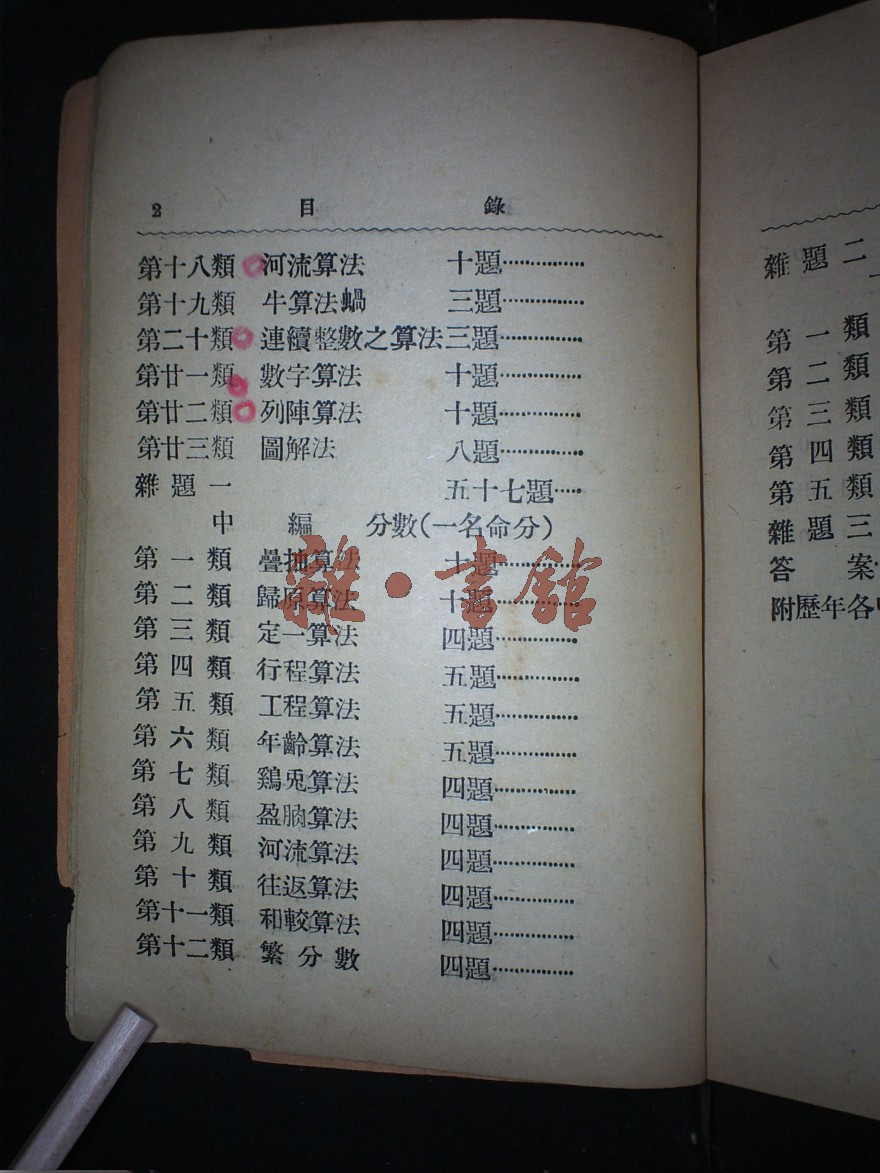 2 目 錄
第十八類 河流算法 十題……………
第十九類 牛算法蝸 三題……………
第二十類 連續整數之算法三題……………
第廿一類 數字算法 十題……………
第廿二類 列陣算法 十題……………
第廿三類 圖解法 八題……………
雜題一 五十七題……
中 編 分數(一名命分)
第一類 疊抽算法 十題……………
第二類 歸原算法 十題……………
第三類 定一算法 四題……………
第四類 行程算法 五題……………
第五類 工程算法 五題……………
第六類 年齡算法 五題……………
第七類 鷄兎算法 四題……………
第八類 盈朒算法 四題……………
第九類 河流算法 四題……………
第十類 往返算法 四題……………
第十一類 和較算法 四題……………
第十二類 繁分數 四題……………
雜·書館
雜題二
第一類
第二類
第三類
第四類
第五類
雜題三
答案
附歷年各